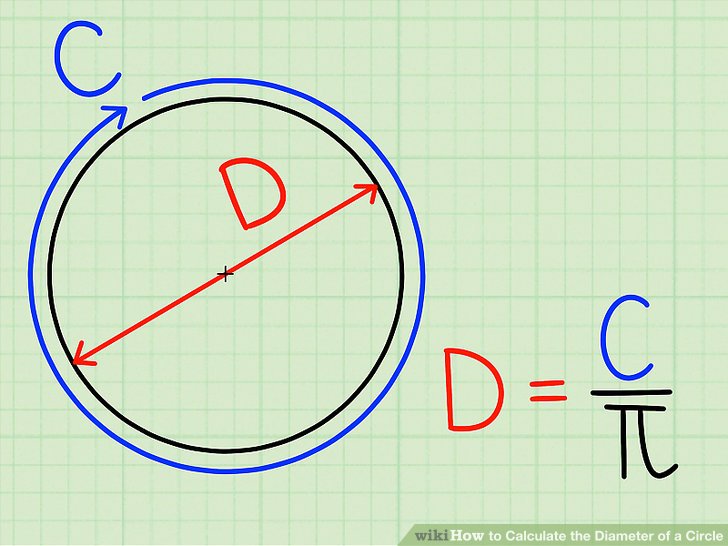 C
D
D = C/π
wikiHow to Calculate the Diameter of a Circle